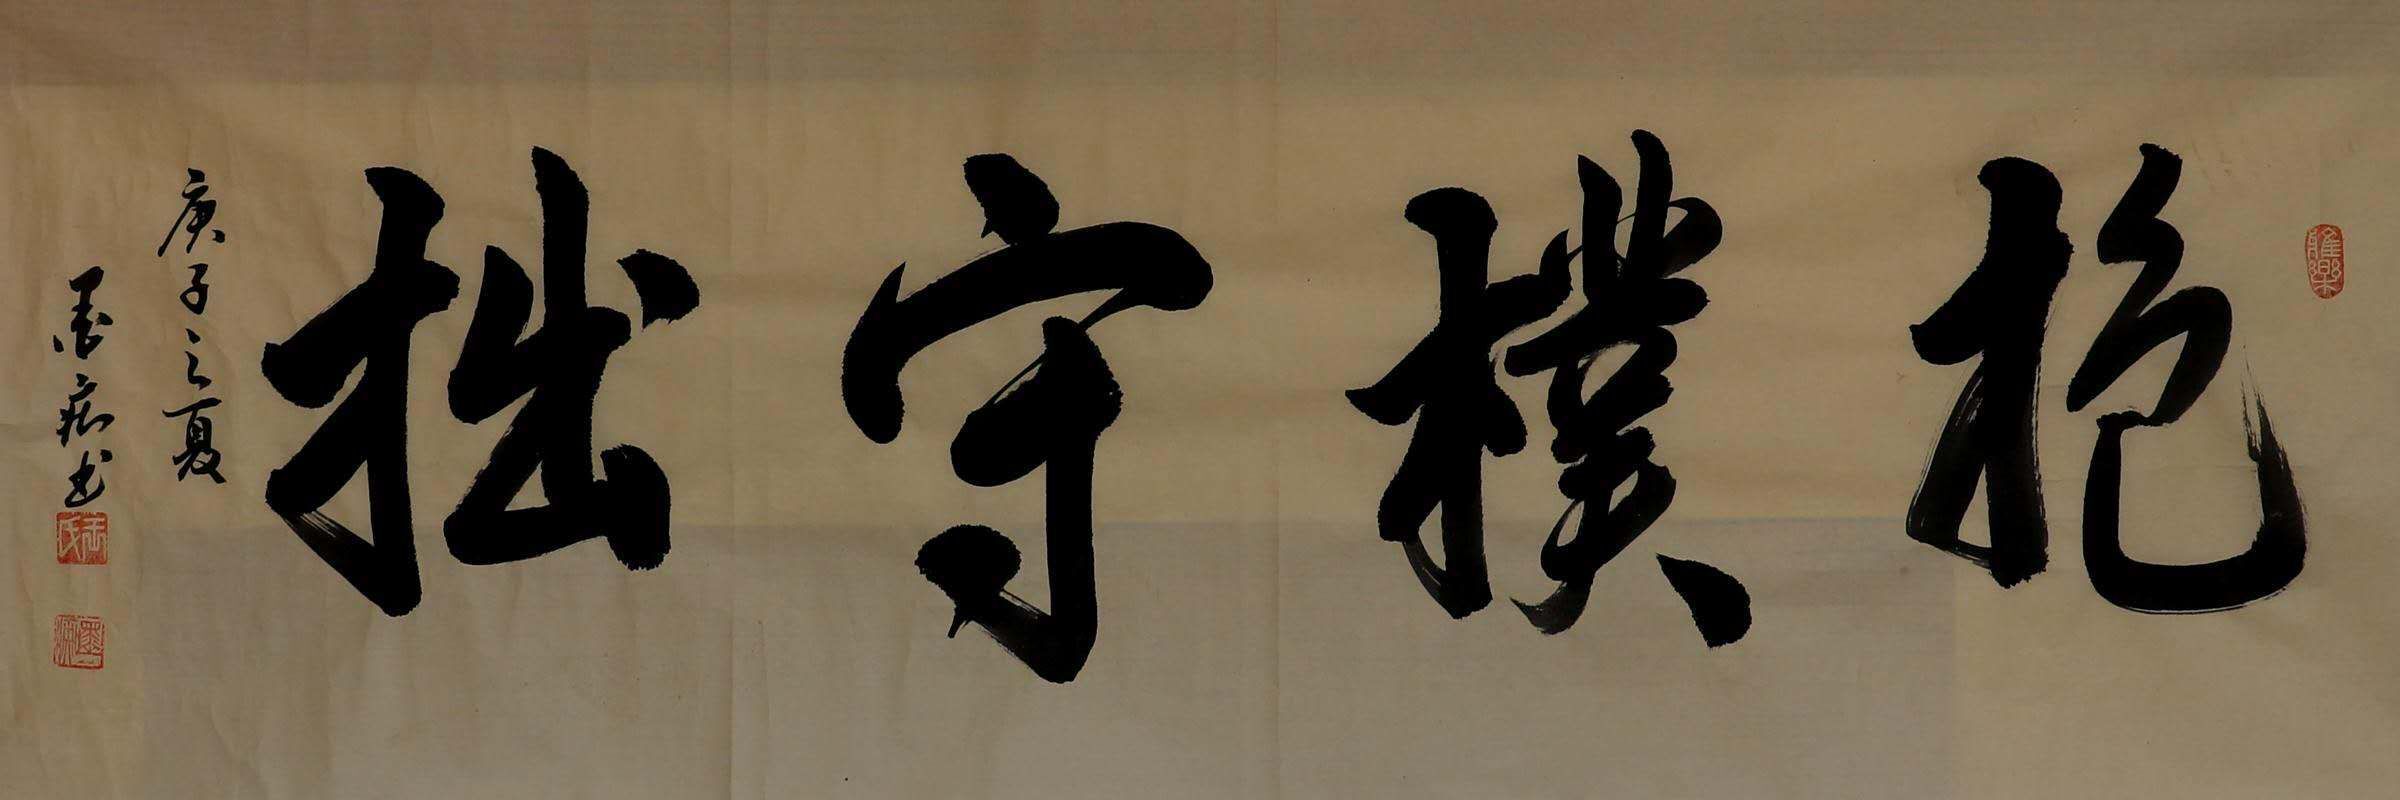 抱樸守拙
庚子之夏
墨痴书